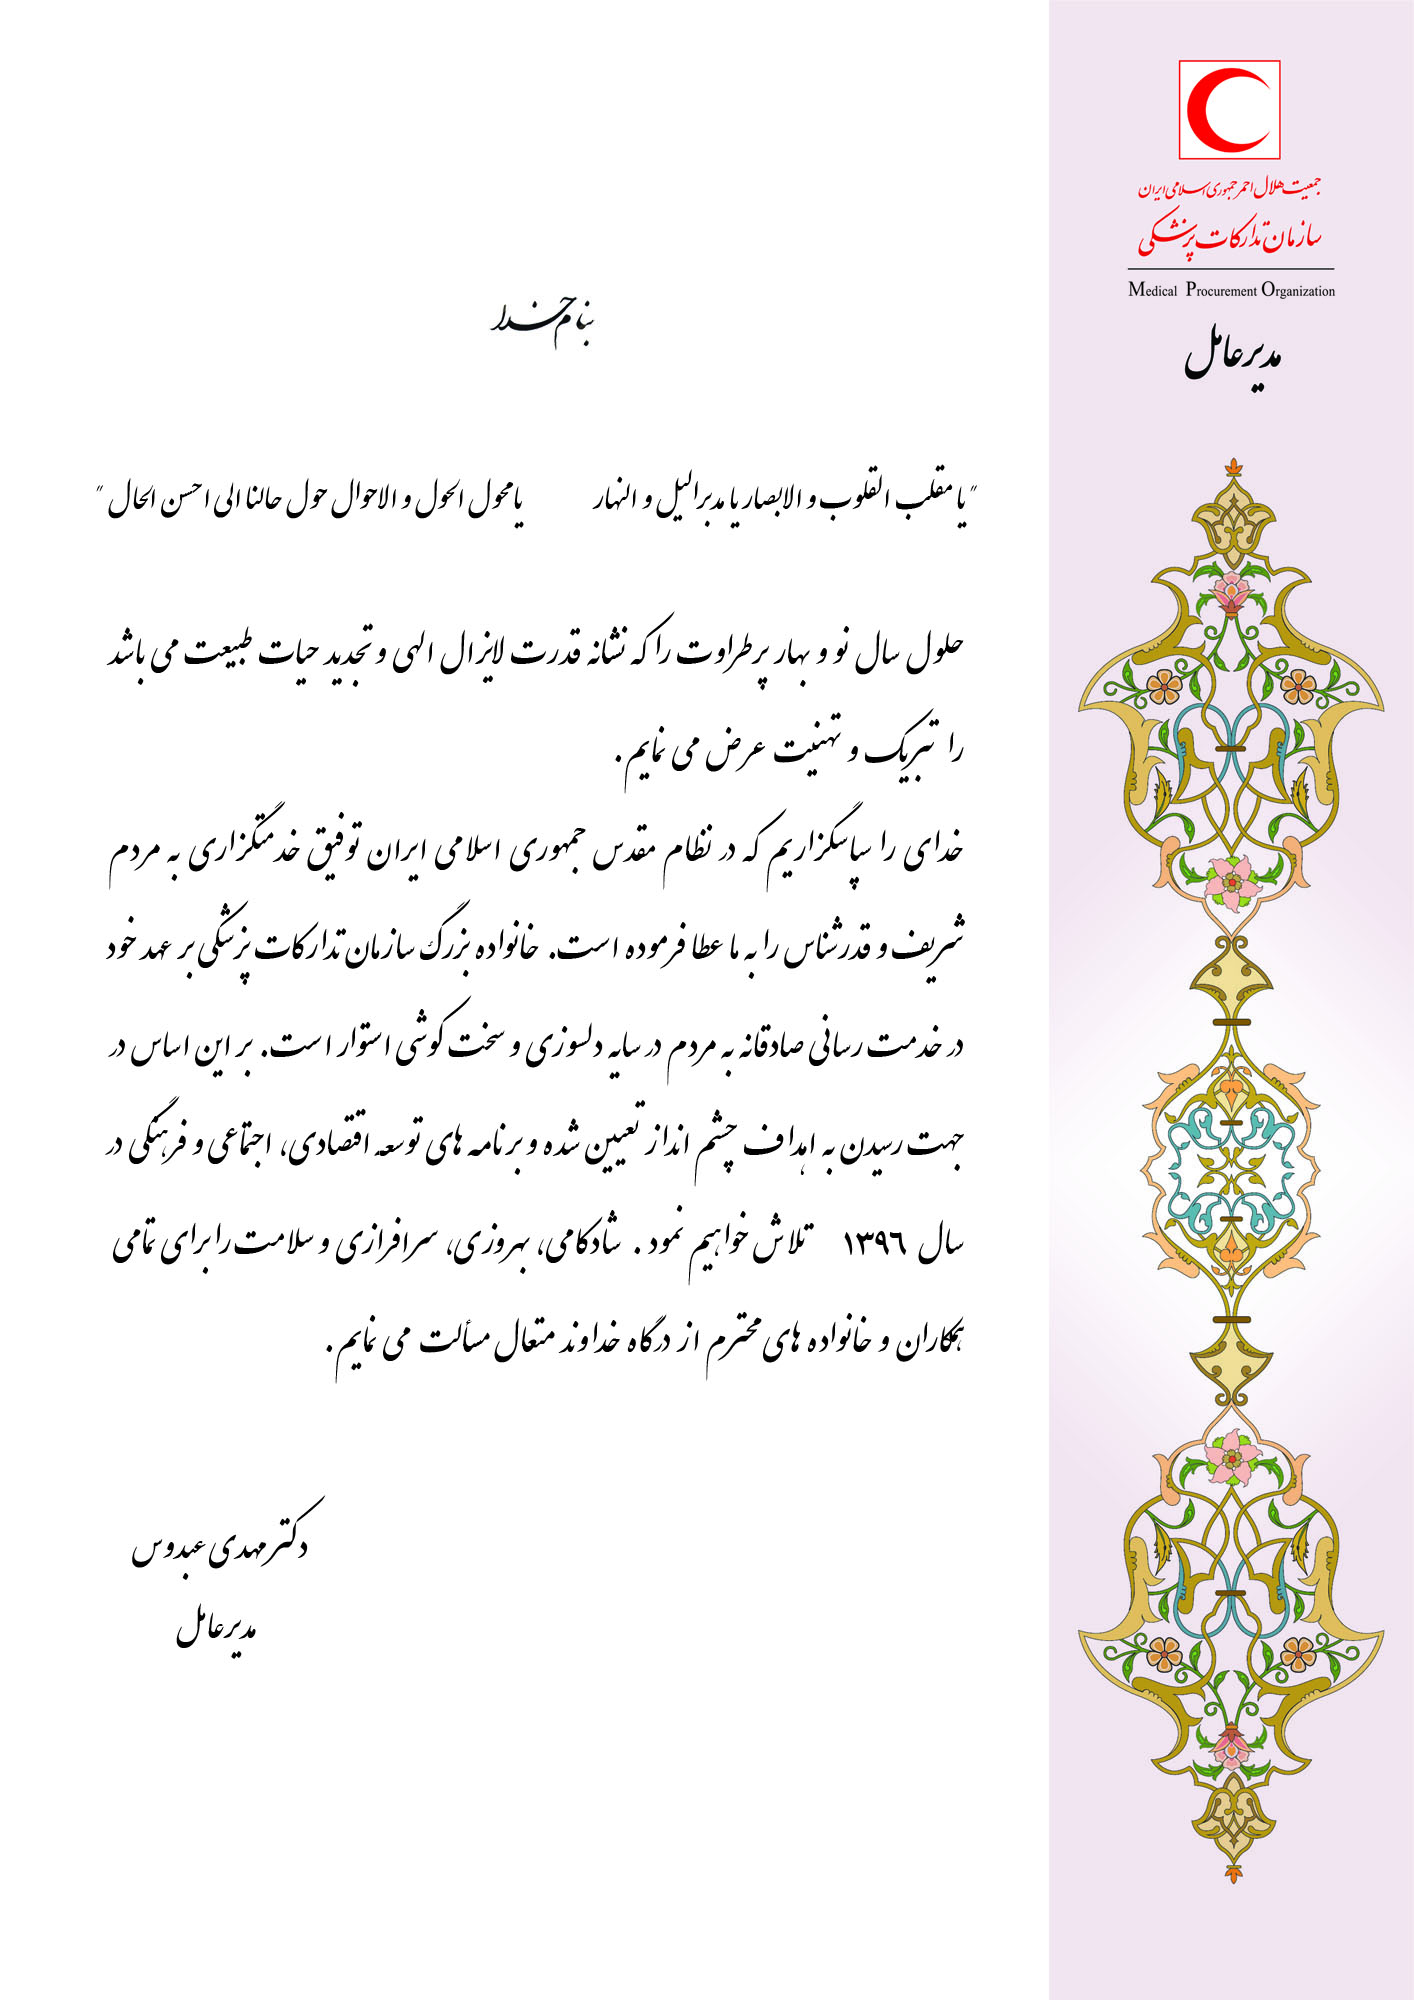 جمعیت هلال احمر جمهوری اسلامی ایران
سازمان تدارکات پزشکی
Medical Procurement Organization
مدیرعامل
بنام خدا
"یا مقلب القلوب و الابصار یا مدبر الیل و النهار یا محول الحول و الاحوال حول حالنا الی احسن الحال"
حلول سال نو و بهار پرطراوت را که نشانه قدرت لایزال الهی و تجدید حیات طبیعت می باشد
را تبریک و تهنیت عرض می نمایم.
خدای را سپاسگزاریم که در نظام مقدس جمهوری اسلامی ایران توفیق خدمتگزاری به مردم
شریف و قدرشناس را به ما عطا فرموده است. خانواده بزرگ سازمان تدارکات پزشکی بر عهد خود
در خدمت رسانی صادقانه به مردم در سایه دلسوزی و سخت کوشی استوار است. بر این اساس در
جهت رسیدن به اهداف چشم انداز تعیین شده و برنامه های توسعه اقتصادی، اجتماعی و فرهنگی در
سال ۱۳۹۶ تلاش خواهیم نمود. شادکامی، بهروزی، سرافرازی و سلامت را برای تمامی
همکاران و خانواده های محترم از درگاه خداوند متعال مسألت می نمایم.
دکتر مهدی عبدوس
مدیرعامل